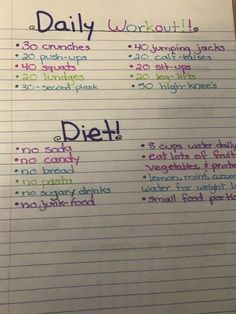 Daily Workout!!
• 30 crunches
• 20 push-ups
• 40 squats
• 20 lundges
• 30-second plank
• 40 jumping jacks
• 20 calf-raises
• 20 sit-ups
• 20 leg-lifts
• 50 high-knee's
Diet!
• no soda
• no candy
• no bread
• no pasta
• no sugary drinks
• no junk-food
• 8 cups water daily
• eat lots of fruit
vegetables, & prote
• lemon, mint,
water for weight l
• small food porti